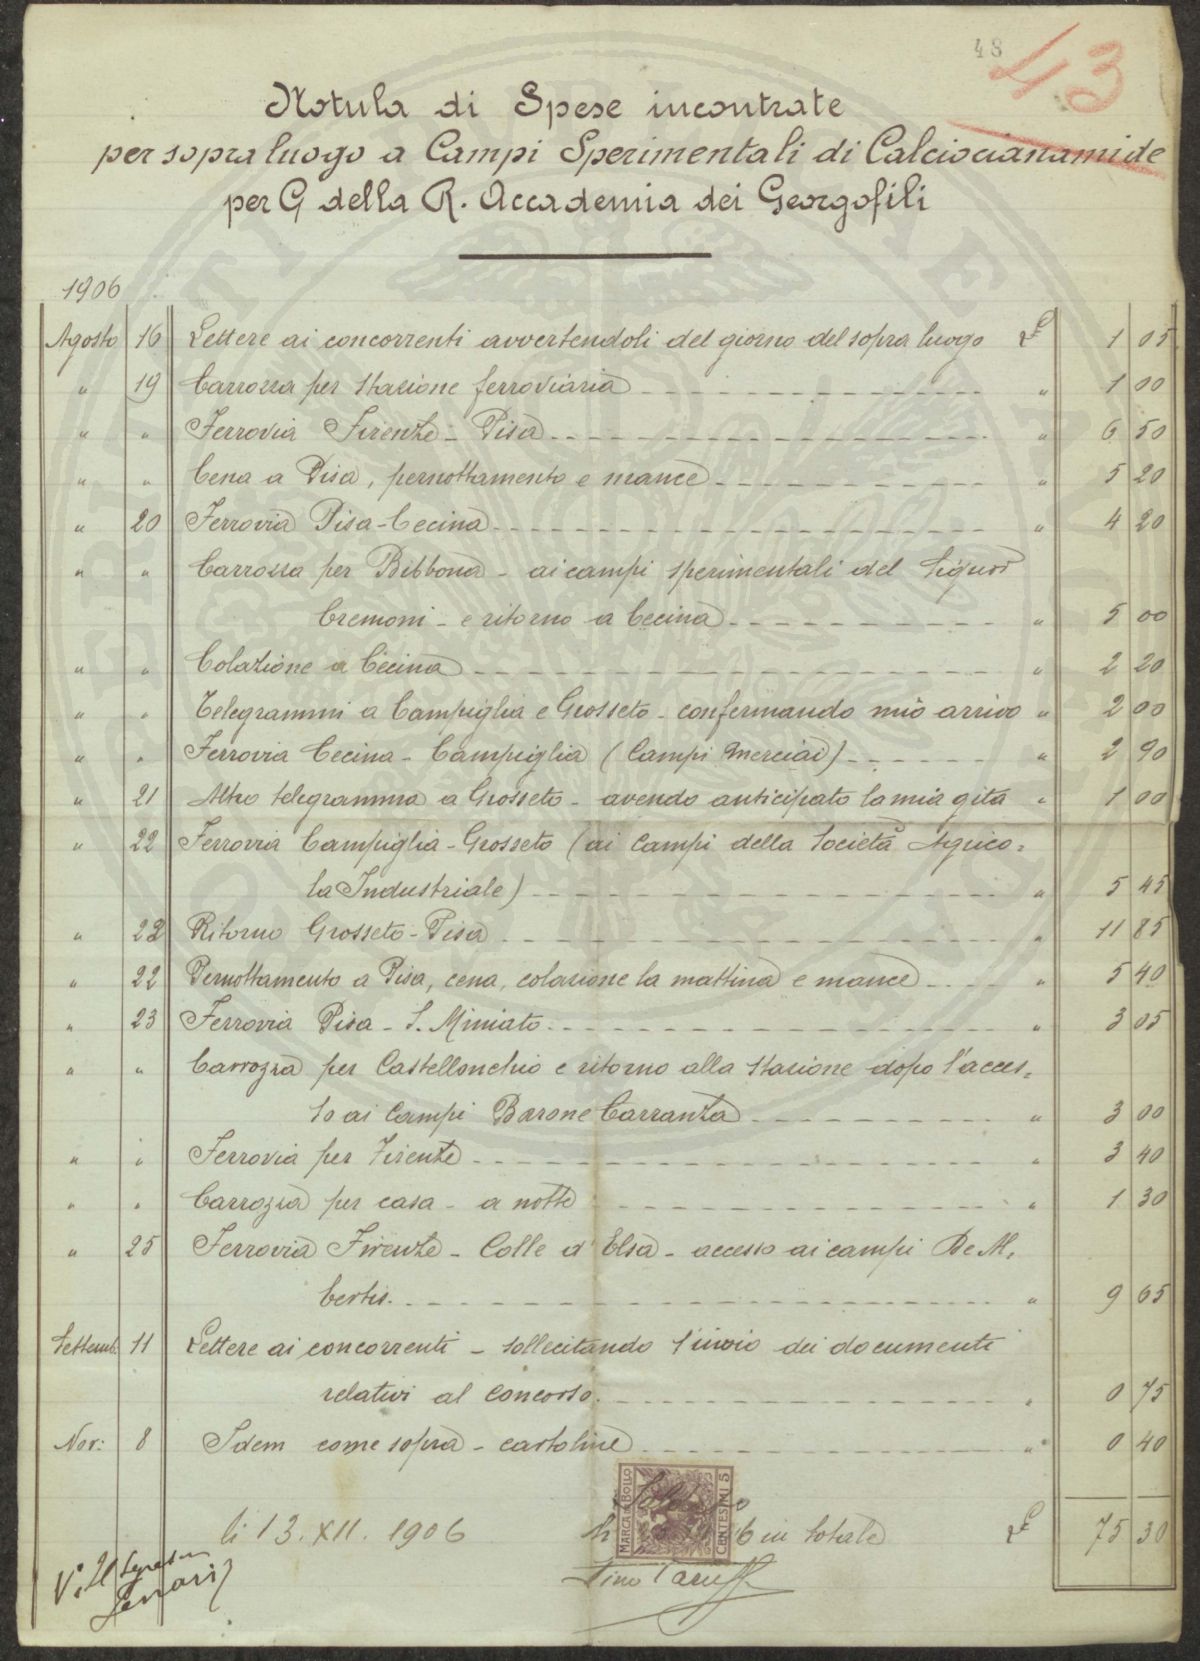 48
43
Notula di Spese incontrate
per sopra luogo a Campi Sperimentali di Calciocianamide
per G della R. Accademia dei Georgofili
1906
Agosto 16 Lettere ai concorrenti avvertendoli del giorno del sopra luogo £ 1 05
" 19 Carrozza per stazione ferroviaria " 1 00
" " Ferrovia Firenze - Pisa " 6 50
" " Cena a Pisa, pernottamento e mance " 5 20
" 20 Ferrovia Pisa - Cecina " 4 20
" " Carrozza per Bibbona - ai campi sperimentali del Signor
Cremoni - e ritorno a Cecina " 5 00
" " Colazione a Cecina " 2 20
" " Telegrammi a Campiglia e Grosseto - confermando mio arrivo " 2 00
" " Ferrovia Cecina - Campiglia (Campi Merciai) " 2 90
" 21 Altro telegramma a Grosseto - avendo anticipato la mia gita " 1 00
" 22 Ferrovia Campiglia - Grosseto (ai Campi della Società Agrico=
la Industriale) " 5 45
" 22 Ritorno Grosseto - Pisa " 11 85
" 22 Pernottamento a Pisa, cena, colazione la mattina e mance " 5 40
" 23 Ferrovia Pisa - S. Miniato " 3 05
" " Carrozza per Castellonchio e ritorno alla stazione dopo l'acces=
so ai Campi Barone Carranza " 3 00
" " Ferrovia per Firenze " 3 40
" " Carrozza per casa - a notte " 1 30
" 25 Ferrovia Firenze - Colle d'Elsa - accesso ai campi De Al=
bertis. " 9 65
Settemb. 11 Lettere ai concorrenti - sollecitando l'invio dei documenti
relativi al concorso. " 0 75
Nov: 8 Idem come sopra - cartoline " 0 40
MARCA DA BOLLO
CENTESIMI 5
li 13. XII. 1906 in totale £ 75 30
V. Il